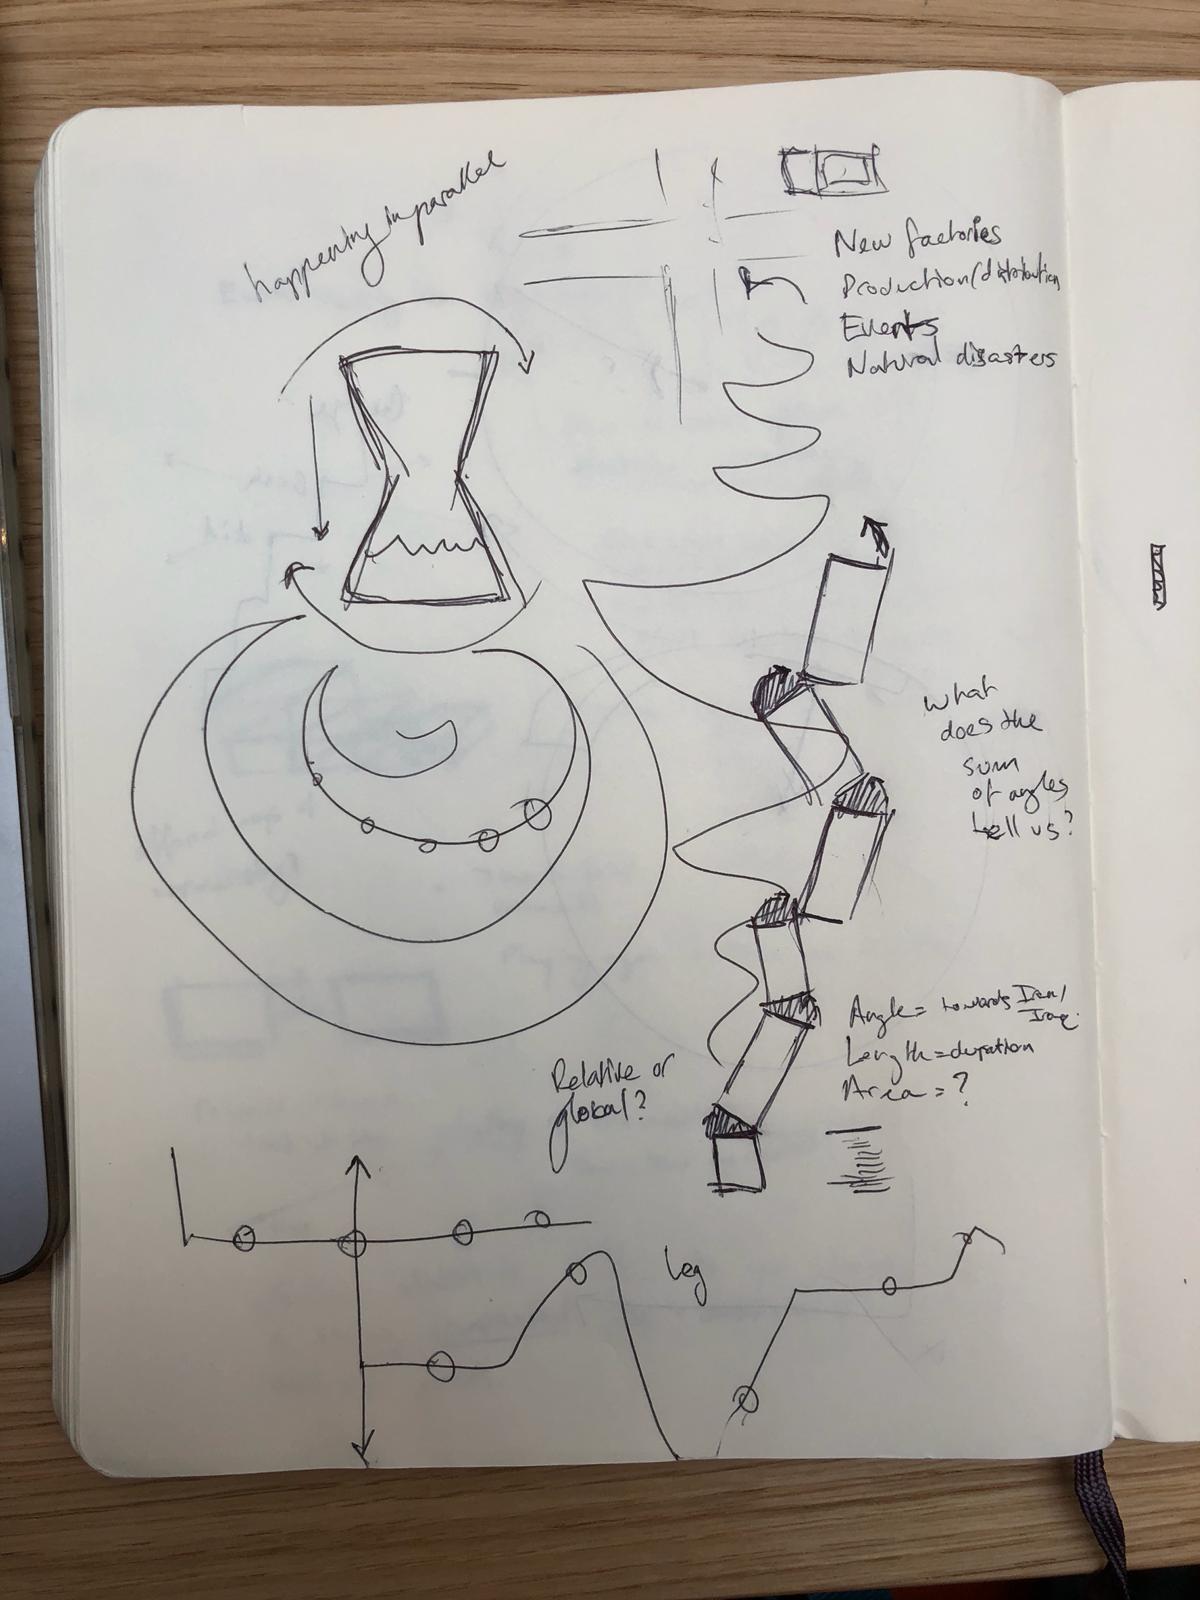 happening in parallel
New factories
Production/distribution
Events
Natural disasters
What
does the
sum
of angles
tell us?
Angle = towards Iran/
Iraq.
Length = duration
Area = ?
Relative or
global?
leg